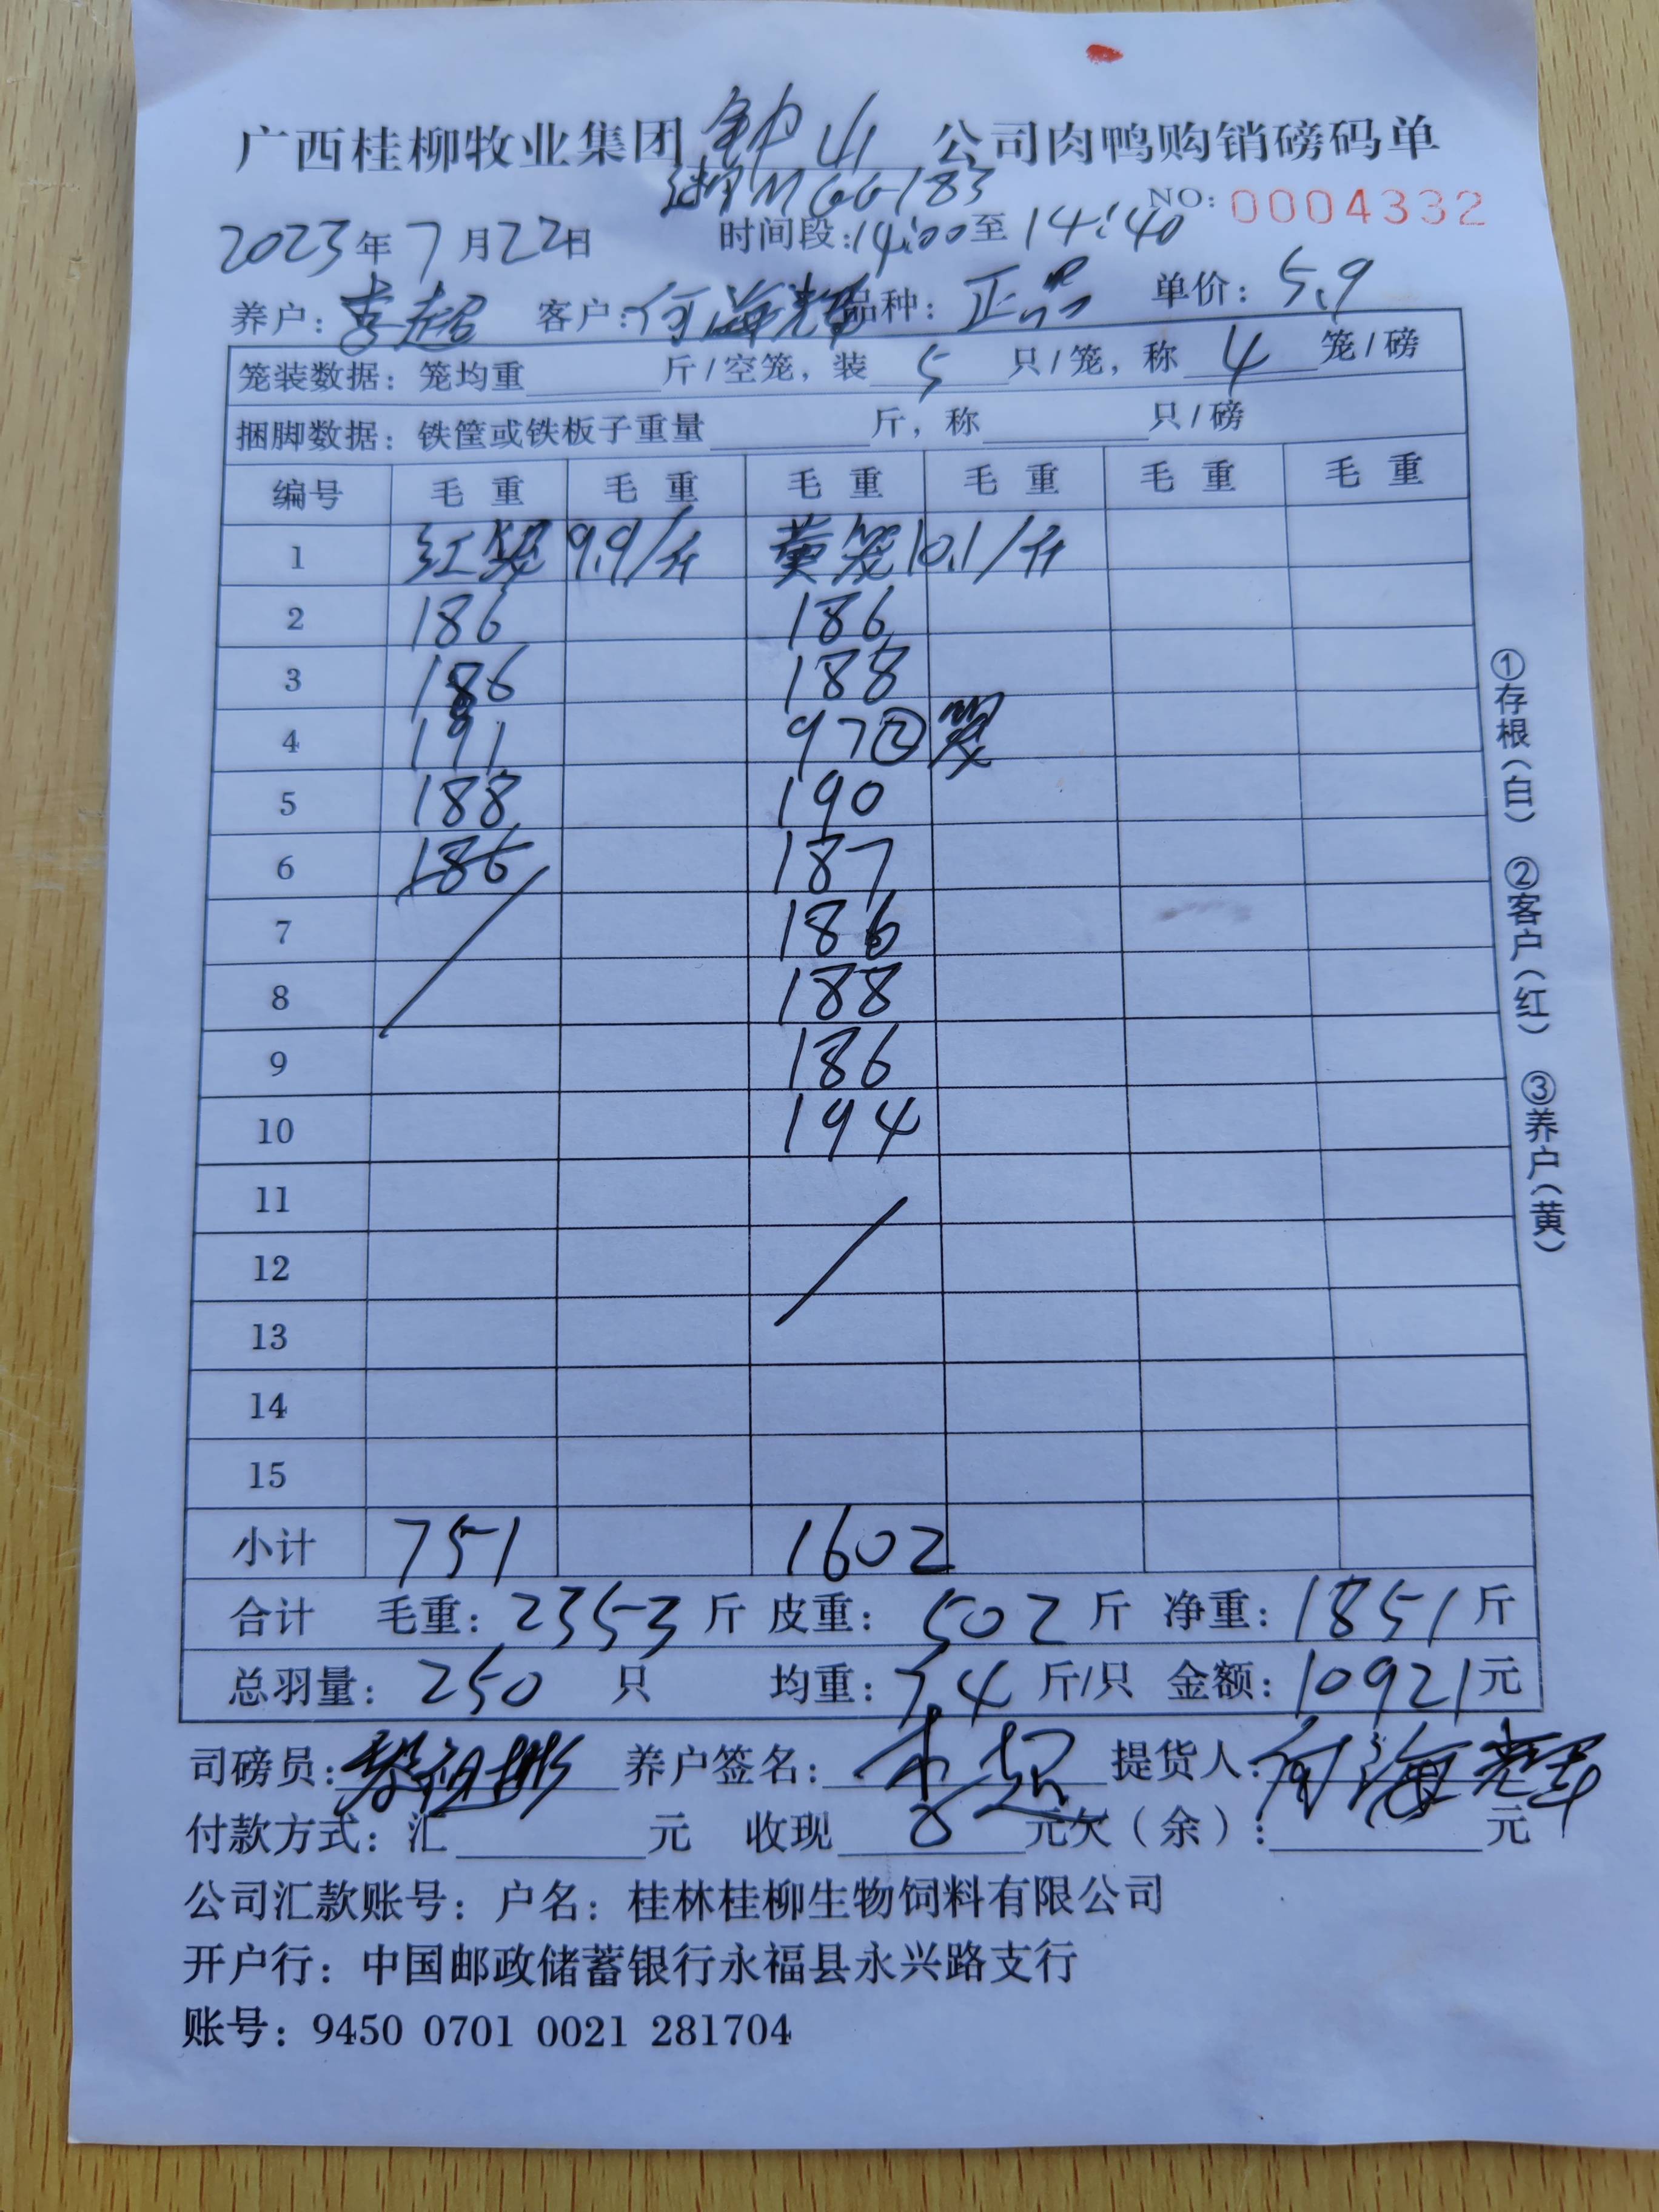 广西桂柳牧业集团 钟山 公司肉鸭购销磅码单
MGG183
NO: 0004332
2023年7月22日 时间段:14:00至14:40
养户: 李超 客户:何海辉 品种: 正品 单价: 5.9
笼装数据: 笼均重 斤/空笼, 装 5 只/笼, 称 4 笼/磅
捆脚数据: 铁筐或铁板子重量 斤, 称 只/磅
编号 毛重 毛重 毛重 毛重 毛重 毛重
1 红笼 9.9/斤 黄笼10.1/斤
2 186 186
3 186 188
4 191 97② 笼
5 188 190
6 186 187
7 186
8 188
9 186
10 194
11
12
13
14
15
小计 751 1602
合计 毛重: 2353 斤 皮重: 502 斤 净重: 1851 斤
总羽量: 250 只 均重: 7.4 斤/只 金额: 10921元
司磅员: 养户签名: 李超 提货人: 何海辉
付款方式: 汇 元 收现 元欠(余): 元
公司汇款账号: 户名: 桂林桂柳生物饲料有限公司
开户行: 中国邮政储蓄银行永福县永兴路支行
账号: 9450 0701 0021 281704
①存根(白) ②客户(红) ③养户(黄)